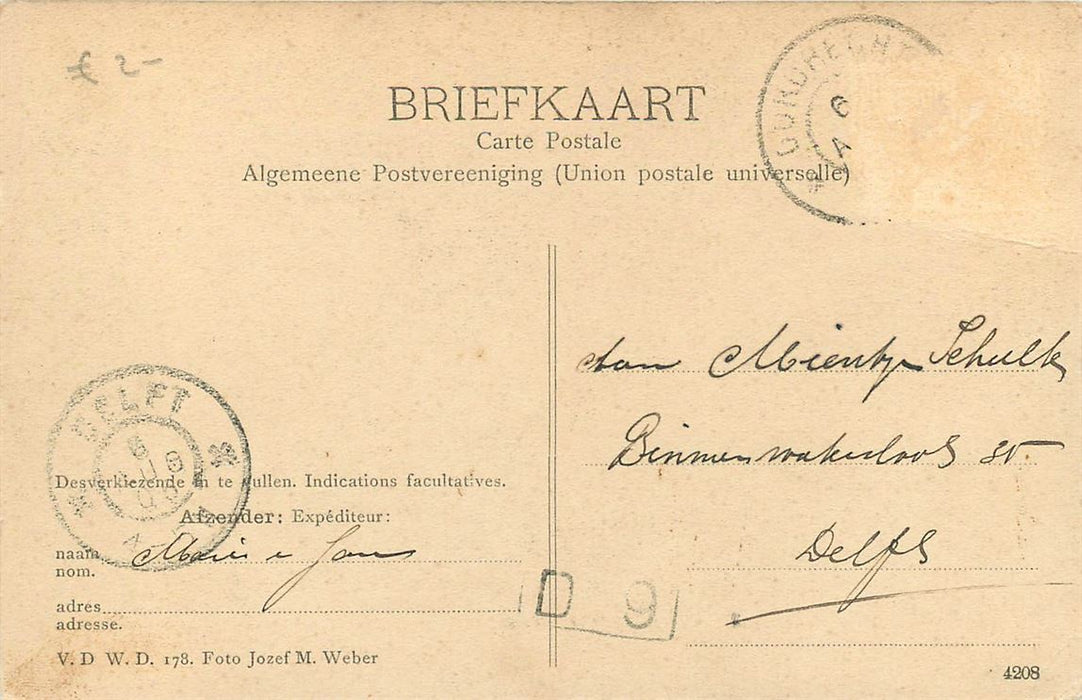 € 2-
DORDRECHT
6
A
BRIEFKAART
Carte Postale
Algemeene Postvereeniging (Union postale universelle)
Aan Mientje Schulte
Delft
DELFT
6
AUG
Desverkiezende in te vullen. Indications facultatives.
Afzender: Expéditeur:
naam Marie e Jan
nom.
adres
adresse.
D 9
V. D W. D. 178. Foto Jozef M. Weber
4208